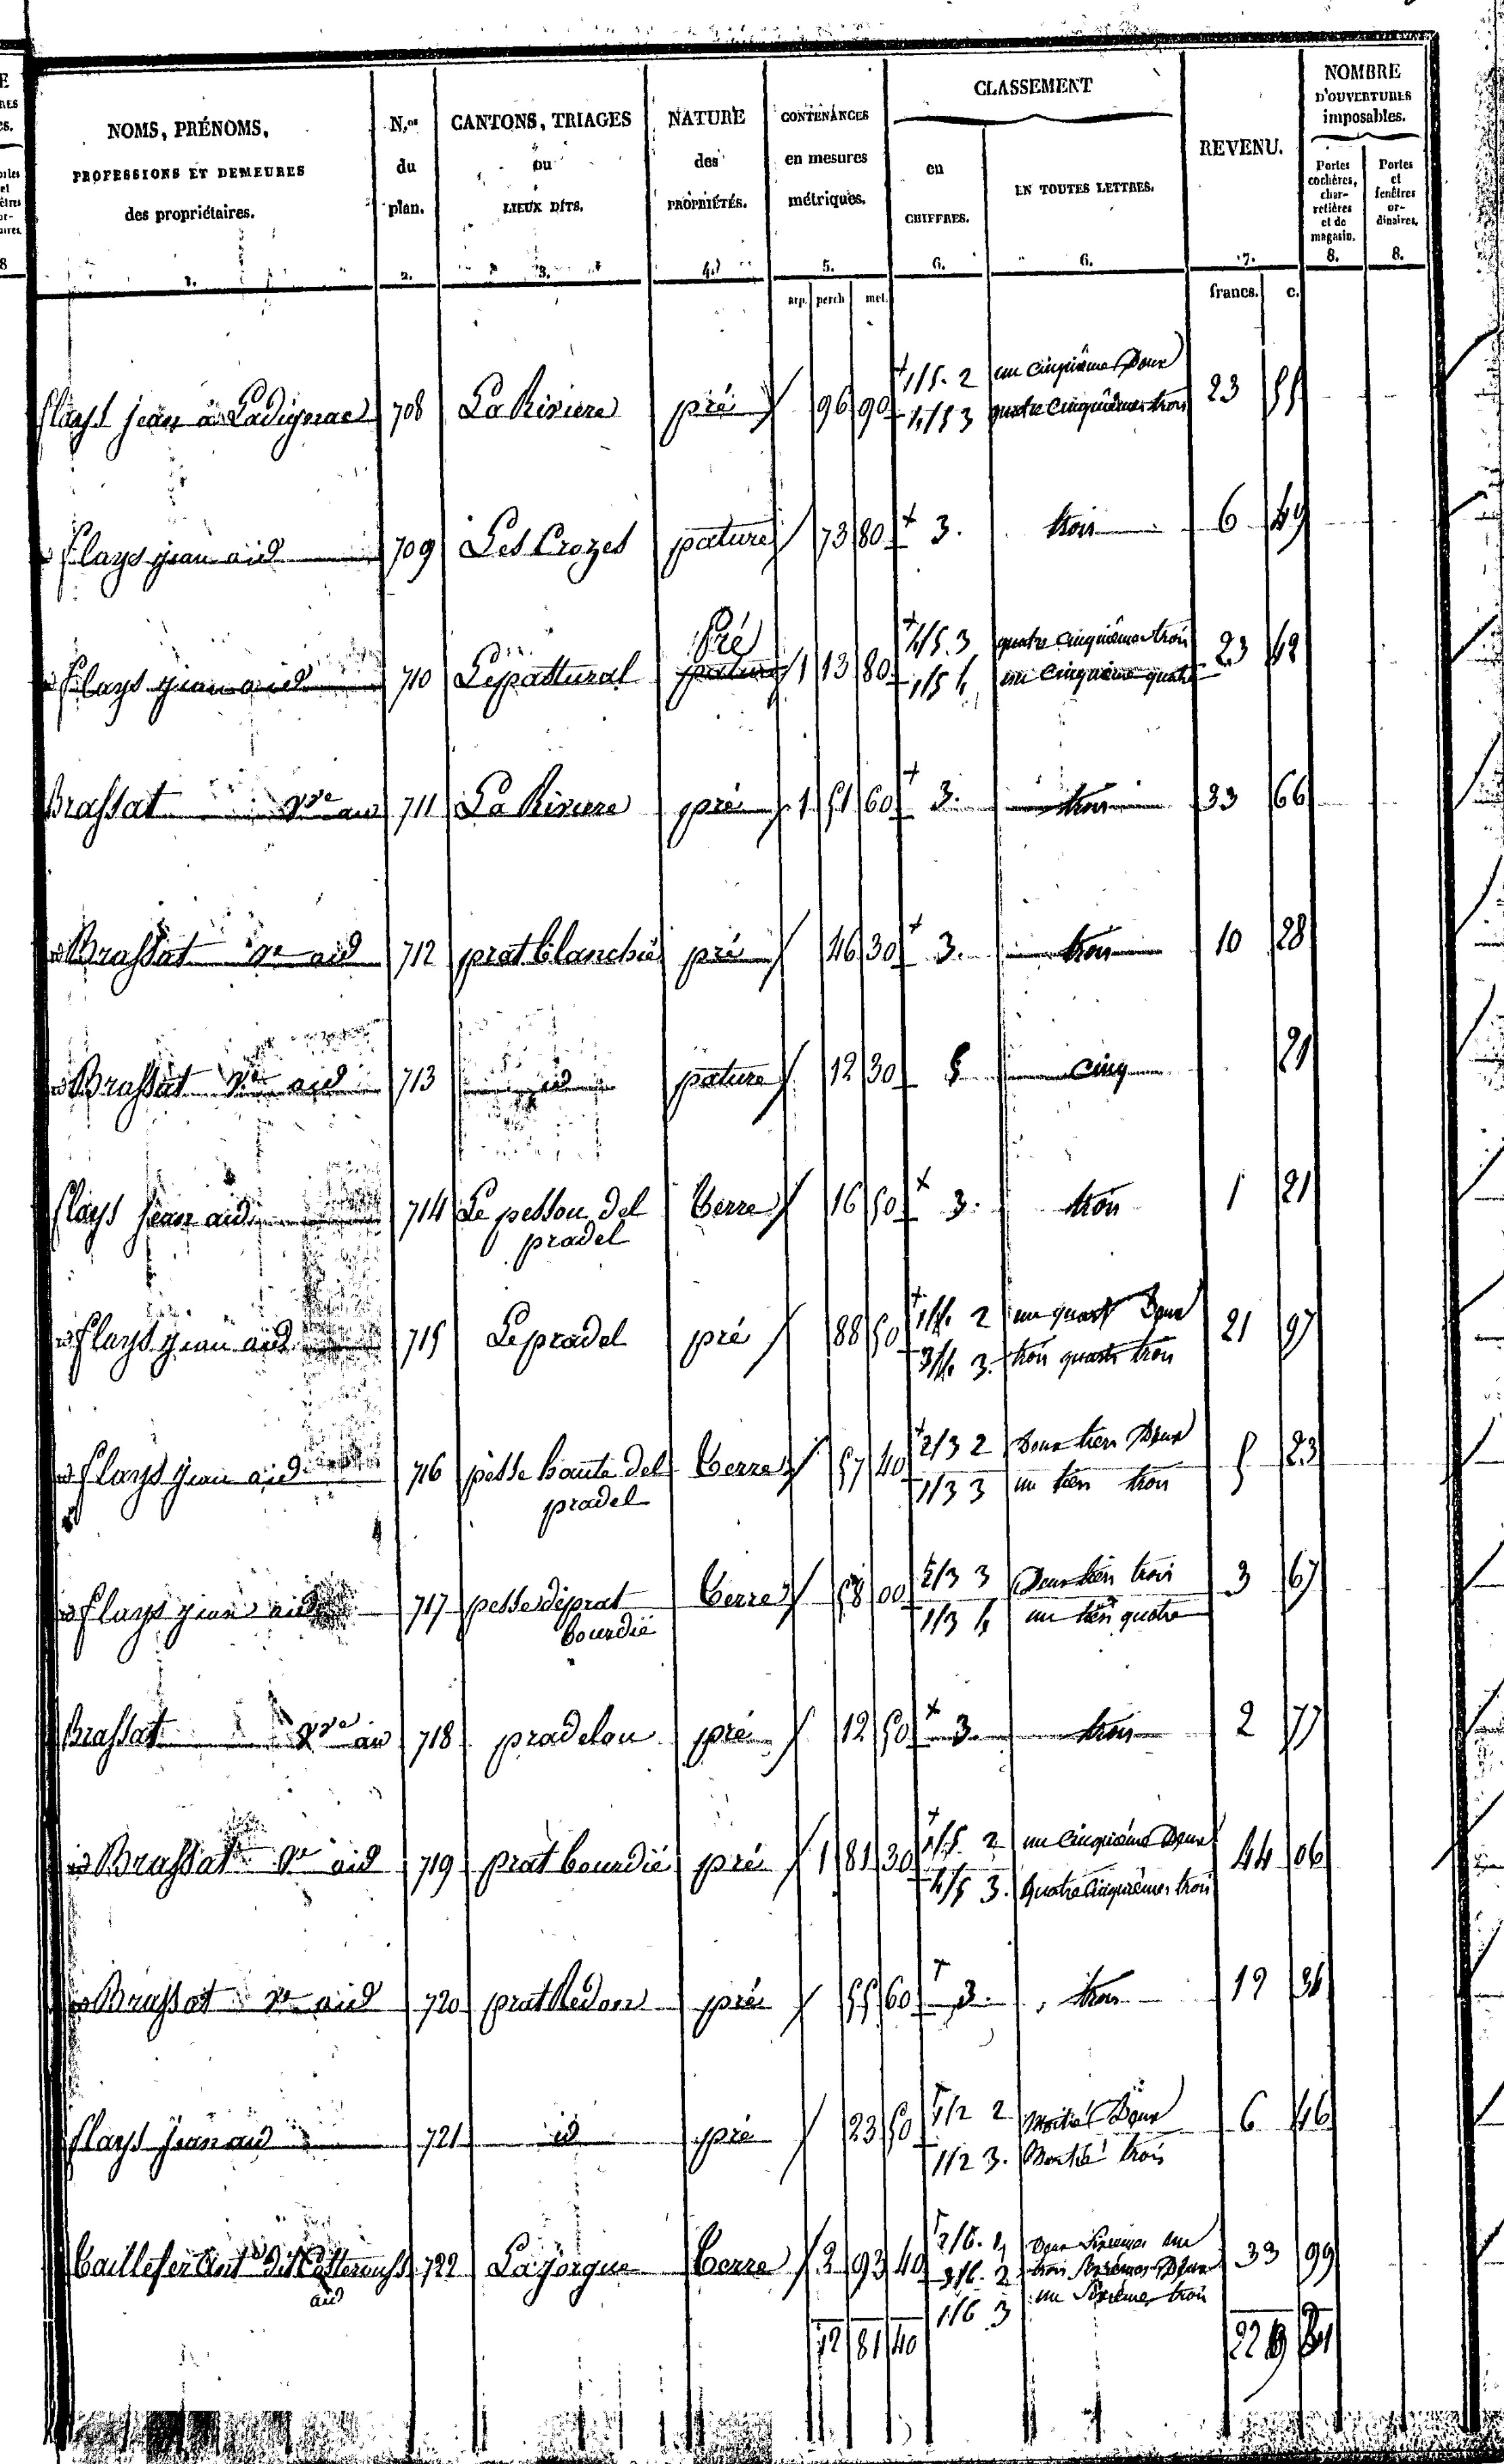 NOMS, PRÉNOMS, PROFESSIONS ET DEMEURES des propriétaires. 1.
N.os du plan. 2.
CANTONS, TRIAGES ou LIEUX DITS. 3.
NATURE des PROPRIÉTÉS. 4.
CONTENANCES en mesures métriques. 5.
CLASSEMENT
en CHIFFRES. 6.
EN TOUTES LETTRES. 6.
REVENU. 7.
NOMBRE D'OUVERTURES imposables.
Portes cochères, charretières et de magasin. 8.
Portes et fenêtres ordinaires. 8.
arp. perch met. francs. c.
flays jean à Ladignac 708 La Riviere pré 96 90 1/5. 2 un cinquième Deux 23 55
4/5 3 quatre cinquièmes trois
id flays jean aud 709 Les Crozes pature 73 80 3. trois 6 49
Pré
id flays jean aud 710 Le pattural pature 1 13 80 4/5. 3 quatre cinquièmes trois 23 42
1/5 4 un cinquième quatre
Brassat Vve au 711 La Riviere pré 1 51 60 3. trois 33 66
id Brassat Ve aud 712 prat blanchié pré 46 30 3. trois 10 28
id Brassat Ve aud 713 id pature 12 30 5 cinq 21
flays jean aud 714 Le pessou del pradel terre 16 50 3. trois 1 21
id flays jean aud 715 Le pradel pré 88 50 1/4. 2 un quart Deux 21 97
3/4 3. trois quarts trois
id flays jean aud 716 pesse haute del pradel terre 57 40 2/3 2 Deux tiers Deux 5 23
1/3 3 un tiers trois
id flays jean aud 717 pesse de prat bourdié terre 58 00 2/3 3 Deux tiers trois 3 67
1/3 4 un tiers quatre
Brassat Vve au 718 pradelou pré 12 50 3. trois 2 77
id Brassat Ve aud 719 prat bourdié pré 1 81 30 1/5. 2 un cinquième Deux 44 06
4/5 3. quatre cinquièmes trois
id Brassat Ve aud 720 prat Redon pré 55 60 3. trois 12 34
flays jean aud 721 id pré 23 50 1/2 2 Moitié Deux 6 46
1/2 3. Moitié trois
taillefer Ant dit aud 722 La jorgue terre 2 93 40 2/6. 1 Deux Sixièmes un 33 99
3/6. 2 trois Sixièmes Deux
1/6 3 un Sixième trois
12 81 40 229